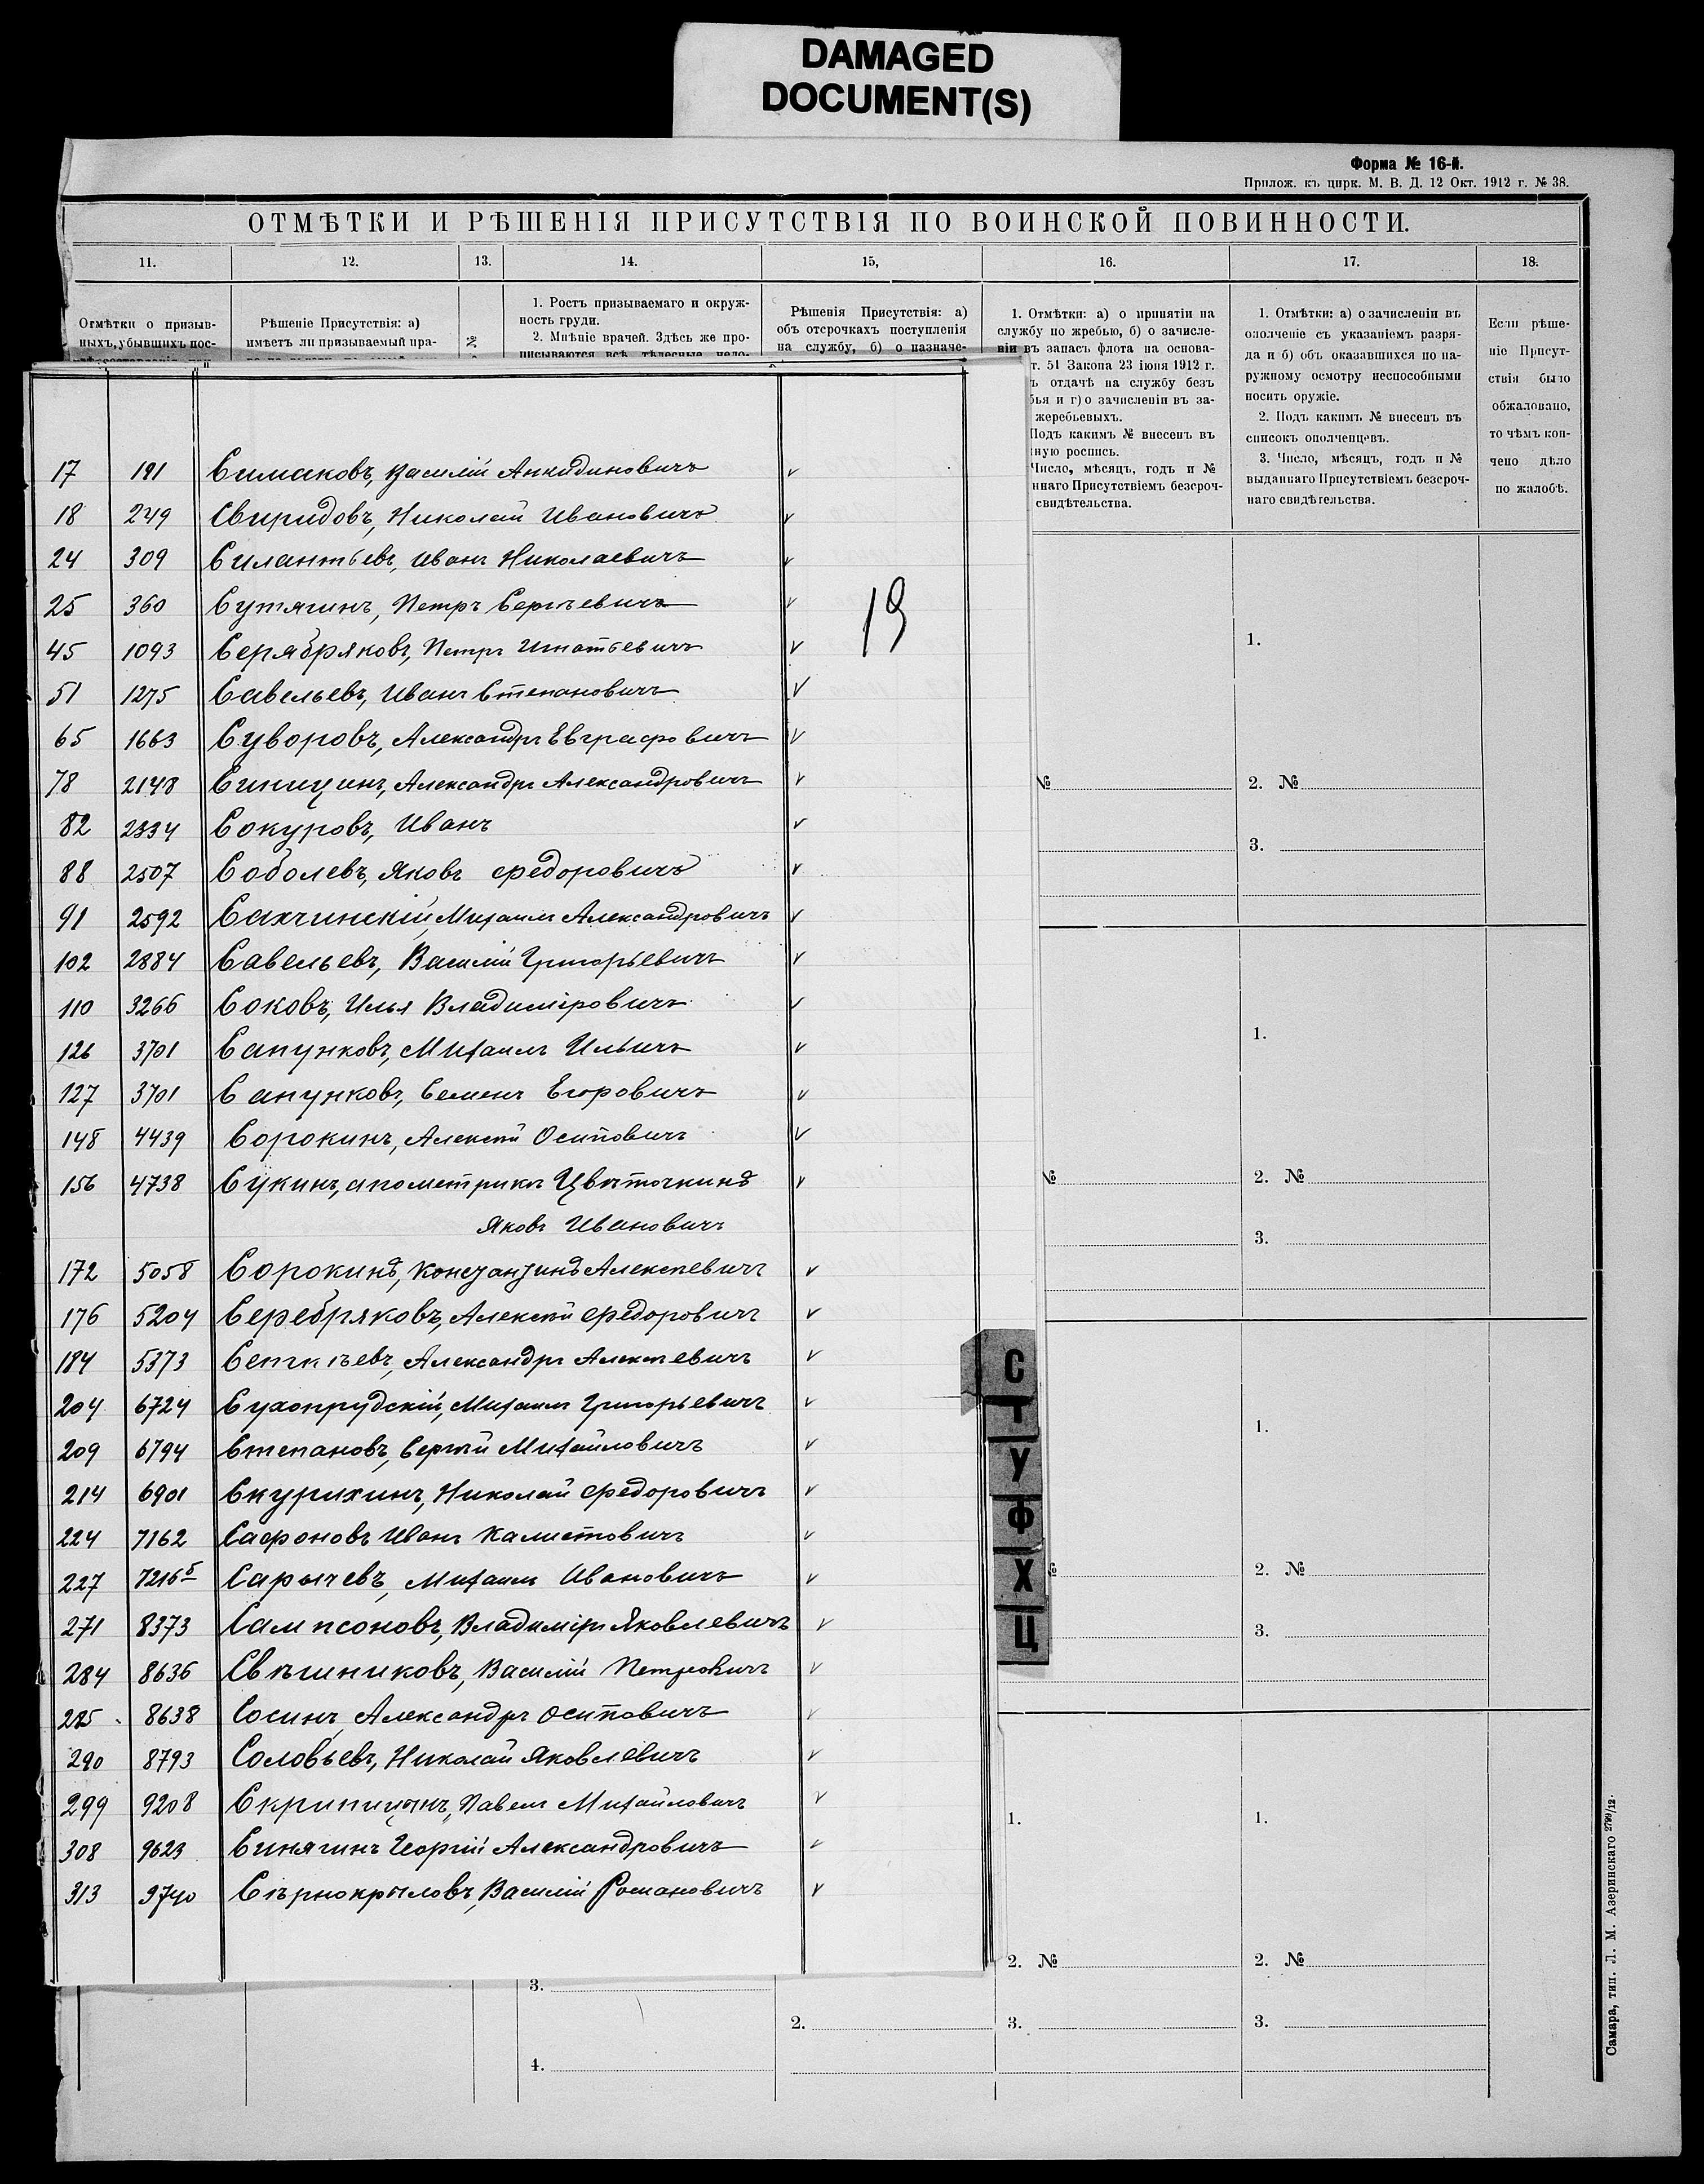 DAMAGED
DOCUMENT(S)
Форма № 16-й.
Прилож. къ цирк. М. В. Д. 12 Окт. 1912 г. № 38.
ОТМѢТКИ И РѢШЕНІЯ ПРИСУТСТВІЯ ПО ВОИНСКОЙ ПОВИННОСТИ.
11. 12. 13. 14. 15, 16. 17. 18.
Отмѣтки о призыв-
ныхъ, убывшихъ пос-
Рѣшеніе Присутствія: а)
имѣетъ ли призываемый пра-
№
1. Ростъ призываемаго и окруж-
ность груди.
2. Мнѣніе врачей. Здѣсь же про-
писываются всѣ тѣлесные недо-
Рѣшенія Присутствія: а)
объ отсрочкахъ поступленія
на службу, б) о назначе-
1. Отмѣтки: а) о принятіи на
службу по жребью, б) о зачисле-
ніи въ запасъ флота на основа-
т. 51 Закона 23 іюня 1912 г.
ъ отдачѣ на службу безъ
бья и г) о зачисленіи въ за-
жеребьевыхъ.
Подъ какимъ № внесенъ въ
ную роспись.
Число, мѣсяцъ, годъ и №
ннаго Присутствіемъ безсроч-
свидѣтельства.
1. Отмѣтки: а) о зачисленіи въ
ополченіе съ указаніемъ разря-
да и б) объ оказавшихся по на-
ружному осмотру неспособными
носить оружіе.
2. Подъ какимъ № внесенъ въ
списокъ ополченцевъ.
3. Число, мѣсяцъ, годъ и №
выданнаго Присутствіемъ безсроч-
наго свидѣтельства.
Если рѣше-
ніе Присут-
ствія было
обжаловано,
то чѣмъ кон-
чено дѣло
по жалобѣ.
17 191 Симаковъ, Василій Анкидиновичъ
18 249 Свиридовъ, Николай Ивановичъ
24 309 Силантьевъ, Иванъ Николаевичъ
25 360 Сутягинъ, Петръ Сергѣевичъ
19
45 1093 Серябряковъ, Петръ Игнатьевичъ
51 1275 Савельевъ, Иванъ Степановичъ
65 1663 Суворовъ, Александръ Евграфовичъ
78 2148 Синицинъ, Александръ Александровичъ
82 2334 Сокуровъ, Иванъ
88 2507 Соболевъ, Яковъ Федоровичъ
91 2592 Сахчинскій, Михаилъ Александровичъ
102 2884 Савельевъ, Василій Григорьевичъ
110 3266 Соковъ, Илья Владиміровичъ
126 3701 Сапунковъ, Михаилъ Ильичъ
127 3701 Сапунковъ, Семенъ Егоровичъ
148 4439 Сорокинъ, Алексѣй Осиповичъ
156 4738 Сукинъ, а по метрикѣ Цвѣточкинъ
Яковъ Ивановичъ
172 5058 Сорокинъ, Константинъ Алексѣевичъ
176 5204 Серебряковъ, Алексѣй Федоровичъ
184 5373 Александръ Алексѣевичъ
204 6724 Сухопрудскій, Михаилъ Григорьевичъ
209 6794 Степановъ, Сергѣй Михайловичъ
214 6901 Скурихинъ, Николай Федоровичъ
224 7162 Сафоновъ Иванъ Калистовичъ
227 7216б Сарычевъ, Михаилъ Ивановичъ
271 8373 Сампсоновъ, Владиміръ Яковлевичъ
284 8636 Свѣшниковъ, Василій Петровичъ
285 8638 Сосинъ, Александръ Осиповичъ
290 8793 Соловьевъ, Николай Яковлевичъ
299 9208 Скрипицынъ, Павелъ Михайловичъ
308 9623 Синягинъ Георгій Александровичъ
313 9740 Сѣрнокрыловъ, Василій Романовичъ
С
Т
У
Ф
Х
Ц
1.
№ 2. №
3.
1.
№ 2. №
3.
1.
№ 2. №
3.
1. 1.
2. № 2. №
3. 2. 3. 3.
4.
Самара, тип. Л. М. Азеринскаго 2799/12.